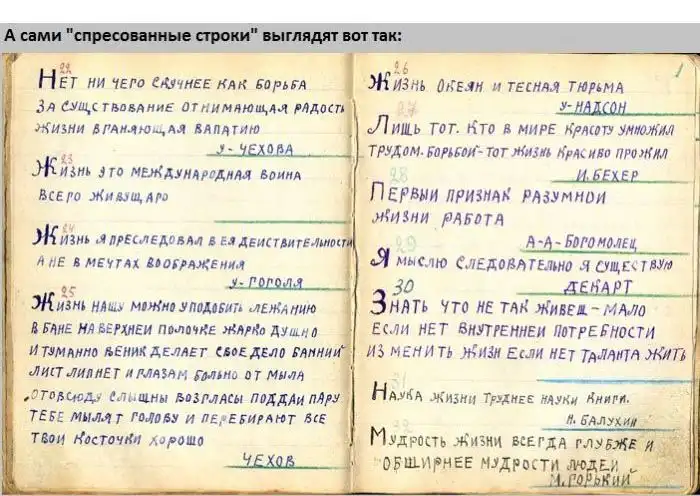 А сами "спресованные строки" выглядят вот так:
22
НЕТ НИ ЧЕГО СКУЧНЕЕ КАК БОРЬБА
ЗА СУЩСТВОВАНИЕ ОТНИМАЮЩАЯ РАДОСТЬ
ЖИЗНИ ВГАНЯЮЩАЯ ВАПАТИЮ
У-ЧЕХОВА
23
ЖИЗНЬ ЭТО МЕЖДУНАРОДНАЯ ВОИНА
ВСЕГО ЖИВУЩАГО
24
ЖИЗНЬ Я ПРЕСЛЕДОВАЛ В ЕЯ ДЕИСТВИТЕЛЬНОСТИ
А НЕ В МЕЧТАХ ВООБРАЖЕНИЯ
У-ГОГОЛЯ
25
ЖИЗНЬ НАШУ МОЖНО УПОДОБИТЬ ЛЕЖАНИЮ
В БАНЕ НА ВЕРХНЕИ ПОЛОЧКЕ ЖАРКО ДУШНО
И ТУМАННО ВЕНИК ДЕЛАЕТ СВОЕ ДЕЛО БАННИЙ
ЛИСТ ЛИПНЕТ И ГЛАЗАМ БОЛЬНО ОТ МЫЛА
ОТОВСЮДУ СЛЫЩНЫ ВОЗГЛАСЫ ПОДДАИ ПАРУ
ТЕБЕ МЫЛЯТ ГОЛОВУ И ПЕРЕБИРАЮТ ВСЕ
ТВОИ КОСТОЧКИ ХОРОШО
ЧЕХОВ
1
26
ЖИЗНЬ ОКЕЯН И ТЕСНАЯ ТЮРЬМА
У-НАДСОН
27
ЛИЩЬ ТОТ. КТО В МИРЕ КРАСОТУ УМНОЖИЛ
ТРУДОМ. БОРЬБОЙ-ТОТ ЖИЗНЬ КРАСИВО ПРОЖИЛ
И. БЕХЕР
28
ПЕРВЫЙ ПРИЗНАК РАЗУМНОИ
ЖИЗНИ РАБОТА
А-А-БОГОМОЛЕЦ
29
Я МЫСЛЮ СЛЕДОВАТЕЛЬНО Я СУЩЕСТВУЮ
ДЕКАРТ
30
ЗНАТЬ ЧТО НЕ ТАК ЖИВЕШ-МАЛО
ЕСЛИ НЕТ ВНУТРЕННЕИ ПОТРЕБНОСТИ
ИЗ МЕНИТЬ ЖИЗН ЕСЛИ НЕТ ТАЛАНТА ЖИТЬ
31
НАУКА ЖИЗНИ ТРУДНЕЕ НАУКИ КНИГИ.
Н. БАЛУХИН
32
МУДРОСТЬ ЖИЗНИ ВСЕГДА ГЛУБЖЕ И
ОБЩИРНЕЕ МУДРОСТИ ЛЮДЕИ
М. ГОРЬКИЙ